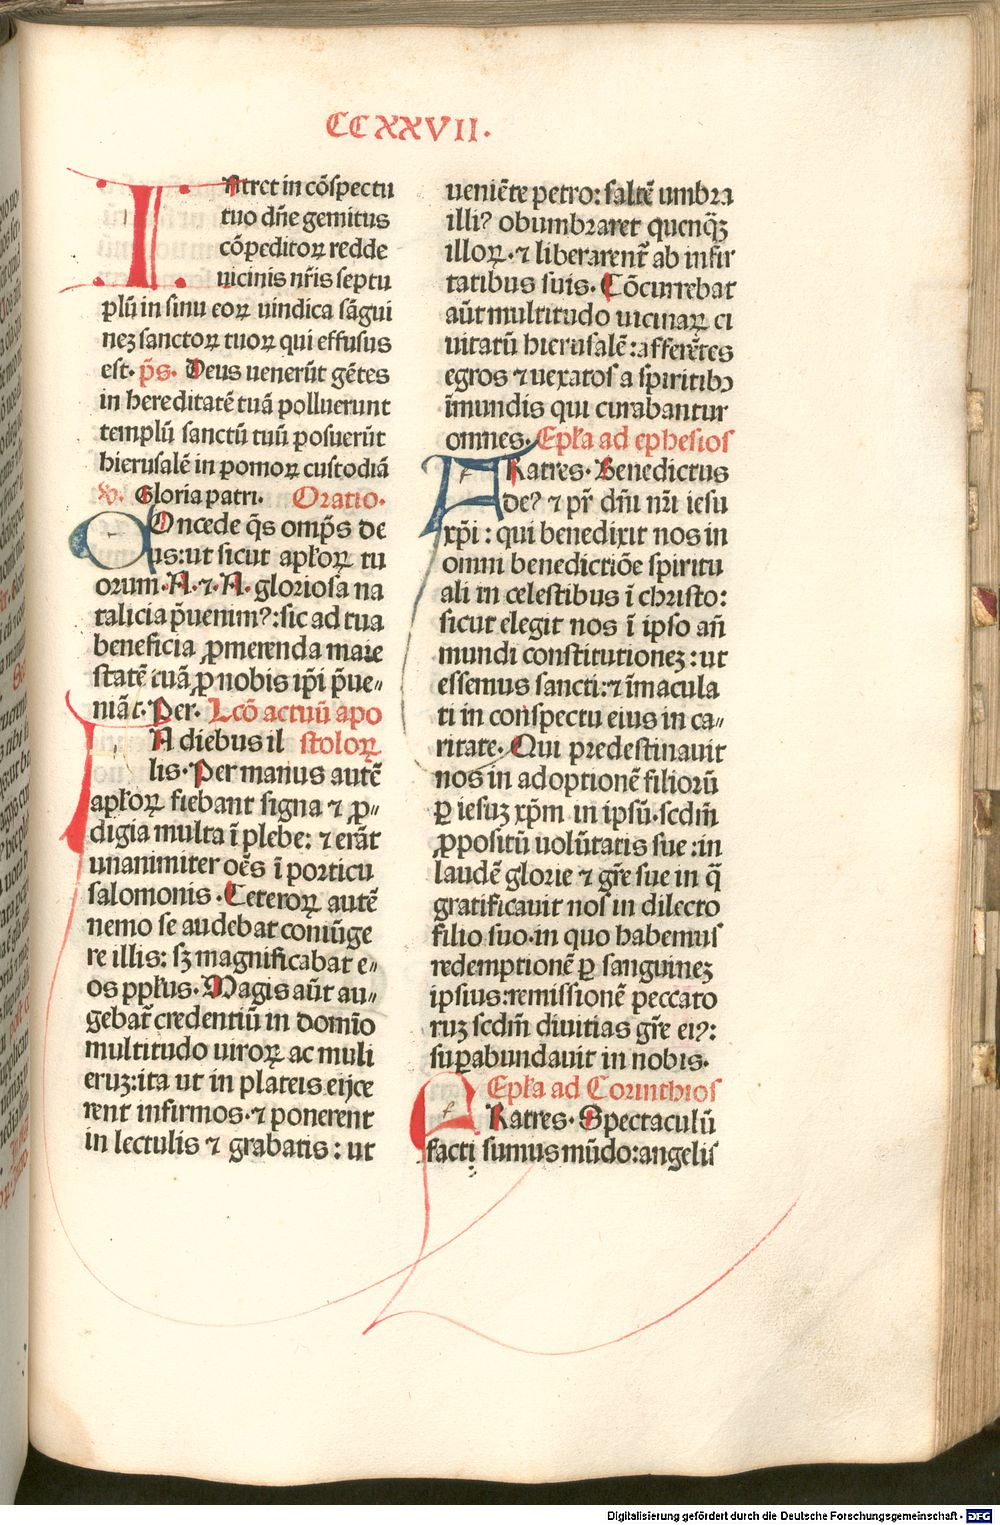 CCXXVII.
INtret in cõspectu
tuo dñe gemitus
cõpeditoꝝ redde
uicinis nr̃is septu
plũ in sinu eoꝝ uindica sãgui
neꝫ sanctoꝝ tuoꝝ qui effusus
est. p̃s. Deus uenerũt gẽtes
in hereditatẽ tuã polluerunt
templũ sanctũ tuũ posuerũt
hierusalẽ in pomoꝝ custodiã
℣. Gloria patri. Oratio.
COncede q̃s omp̃s de
us:ut sicut apl̃oꝝ tu
orum.A.⁊.A. gloriosa na
talicia p̃uenimꝰ:sic ad tua
beneficia ꝓmerenda maie
statẽ tuã ꝓ nobis ip̃i p̃ue⸗
niãt. Per. Lcõ actuũ apo
IN diebus il stoloꝝ
lis. Per manus autẽ
apl̃oꝝ fiebant signa ⁊ ꝓ⸗
digia multa ĩ plebe: ⁊ erãt
unanimiter oẽs ĩ porticu
salomonis. Ceteroꝝ autẽ
nemo se audebat coniũge
re illis: sꝫ magnificabat e⸗
os ppl̃us. Magis aũt au⸗
gebat̃ credentiũ in domĩo
multitudo uiroꝝ ac muli
eruꝫ:ita ut in plateis eijce
rent infirmos.⁊ ponerent
in lectulis ⁊ grabatis: ut
ueniẽte petro: saltẽ umbra
illiꝰ obumbraret quenqꝫ̃
illoꝝ.⁊ liberarent̃ ab infir
tatibus suis. Cõcurrebat
aũt multitudo uicinaꝝ ci
uitatũ hierusalẽ:afferẽtes
egros ⁊ uexatos a spiritibꝰ
ĩmundis qui curabantur
omnes. Epl̃a ad ephesios
FRatres. Benedictus
deꝰ ⁊ pr̃ dñi nr̃i iesu
xp̃i: qui benedixit nos in
omni benedictiõe spiritu
ali in celestibus ĩ christo:
sicut elegit nos ĩ ipso añ
mundi constitutioneꝫ: ut
essemus sancti:⁊ ĩmacula
ti in conspectu eius in ca⸗
ritate. Qui predestinauit
nos in adoptionẽ filiorũ
ꝑ iesuꝫ xp̃m in ipsũ.scdm̃
ꝓpositũ uolũtatis sue:in
laudẽ glorie ⁊ gr̃e sue in q̃
gratificauit nos in dilecto
filio suo.in quo habemus
redemptionẽ ꝑ sanguineꝫ
ipsius:remissionẽ peccato
ruꝫ scdm̃ diuitias gr̃e eiꝰ:
suꝑabundauit in nobis.
Epl̃a ad Corinthios
FRatres. Spectaculũ
facti sumus mũdo:angelis
Digitalisierung gefördert durch die Deutsche Forschungsgemeinschaft - DFG